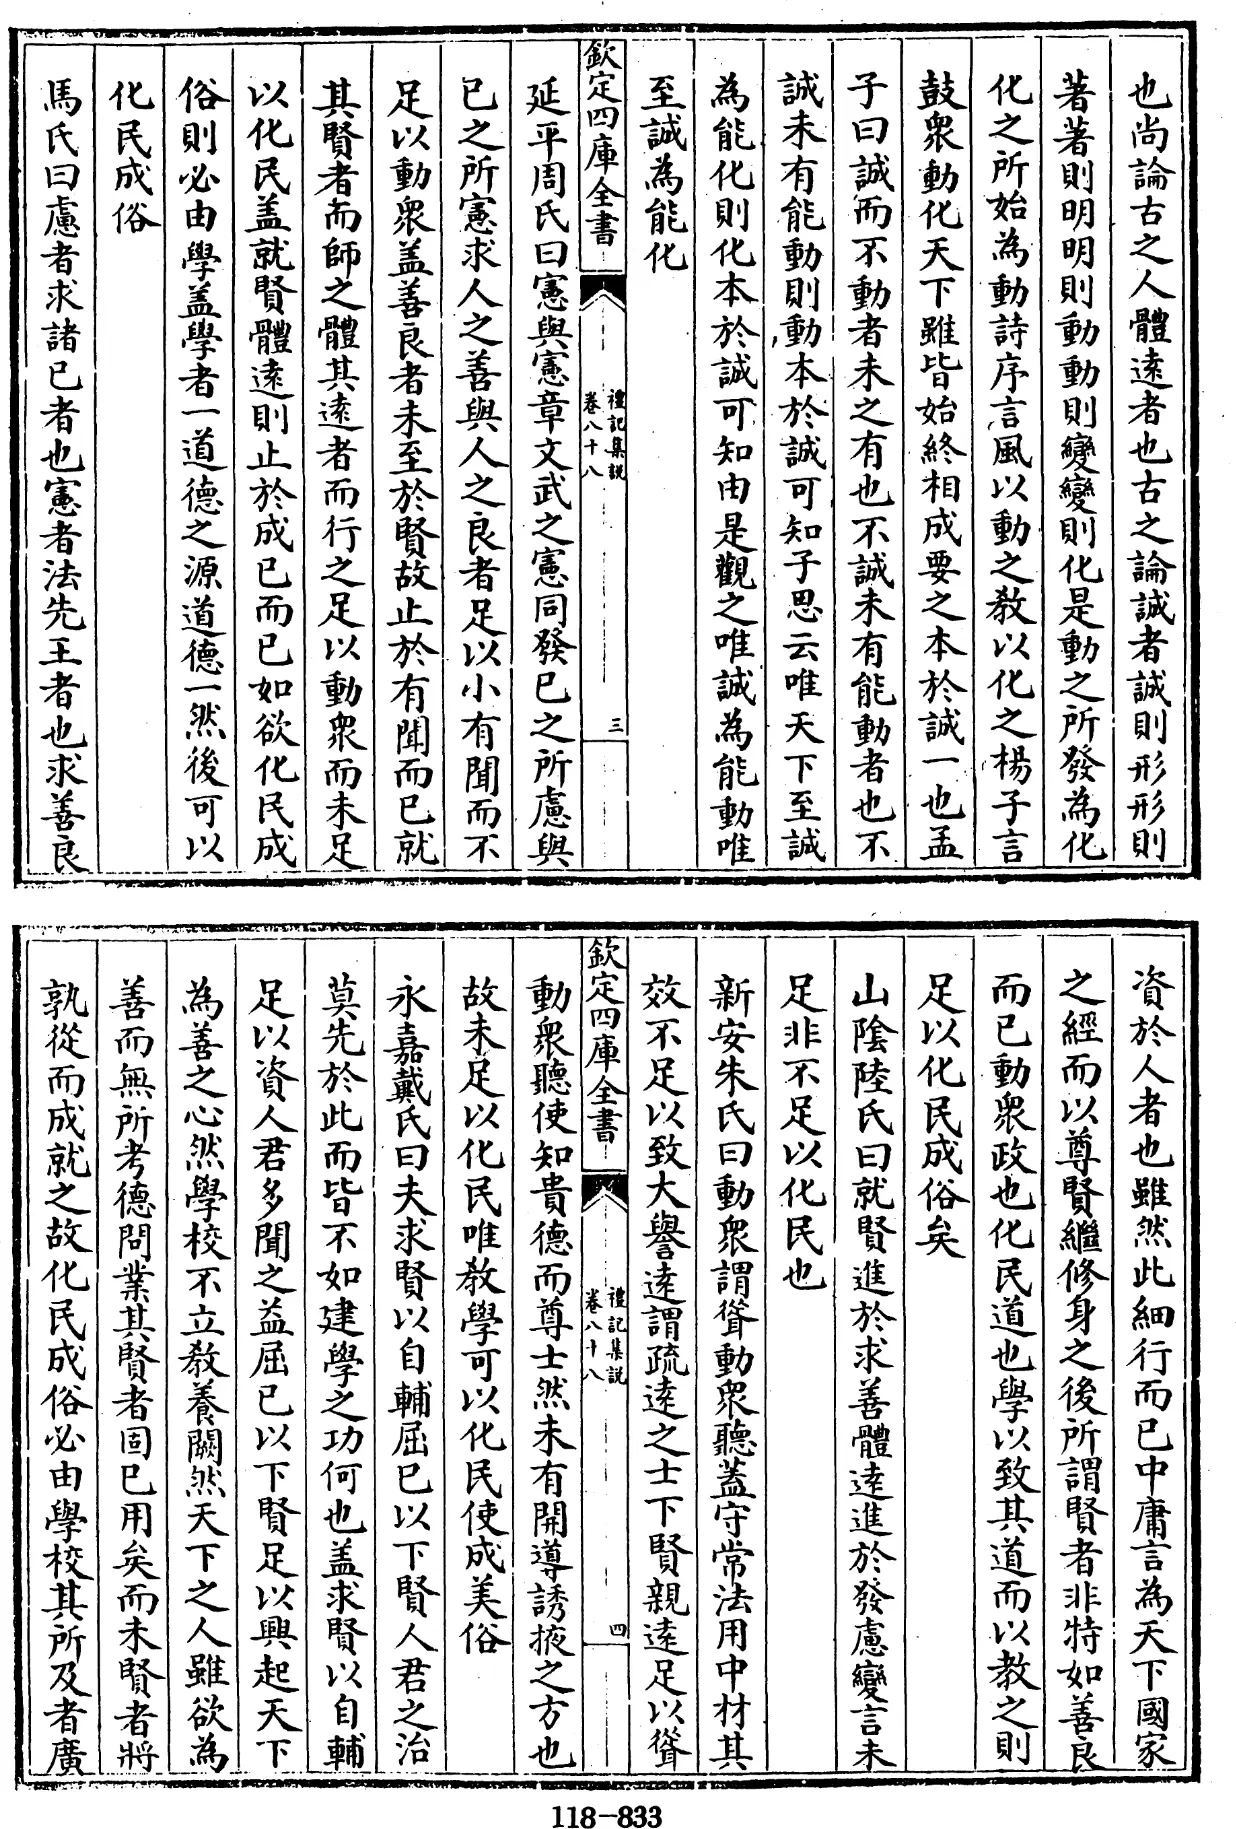 也尚論古之人體逺者也古之論誠者誠則形形則
著著則明明則動動則變變則化是動之所發為化
化之所始為動詩序言風以動之教以化之楊子言
鼓衆動化天下雖皆始終相成要之本於誠一也孟
子曰誠而不動者未之有也不誠未有能動者也不
誠未有能動則動本於誠可知子思云唯天下至誠
為能化則化本於誠可知由是觀之唯誠為能動唯
至誠為能化
欽定四庫全書
禮記集説
卷八十八
三
延平周氏曰憲與憲章文武之憲同發已之所慮與
已之所憲求人之善與人之良者足以小有聞而不
足以動衆盖善良者未至於賢故止於有聞而已就
其賢者而師之體其逺者而行之足以動衆而未足
以化民盖就賢體逺則止於成已而已如欲化民成
俗則必由學盖學者一道德之源道德一然後可以
化民成俗
馬氏曰慮者求諸已者也憲者法先王者也求善良
資於人者也雖然此細行而已中庸言為天下國家
之經而以尊賢繼修身之後所謂賢者非特如善良
而已動衆政也化民道也學以致其道而以教之則
足以化民成俗矣
山隂陸氏曰就賢進於求善體逺進於發慮變言未
足非不足以化民也
新安朱氏曰動衆謂聳動衆聽盖守常法用中材其
效不足以致大譽逺謂疏逺之士下賢親逺足以聳
欽定四庫全書
禮記集説
卷八十八
四
動衆聽使知貴德而尊士然未有開導誘掖之方也
故未足以化民唯教學可以化民使成美俗
永嘉戴氏曰夫求賢以自輔屈已以下賢人君之治
莫先於此而皆不如建學之功何也盖求賢以自輔
足以資人君多聞之益屈已以下賢足以興起天下
為善之心然學校不立教養闕然天下之人雖欲為
善而無所考德問業其賢者固已用矣而未賢者將
孰從而成就之故化民成俗必由學校其所及者廣
118-833